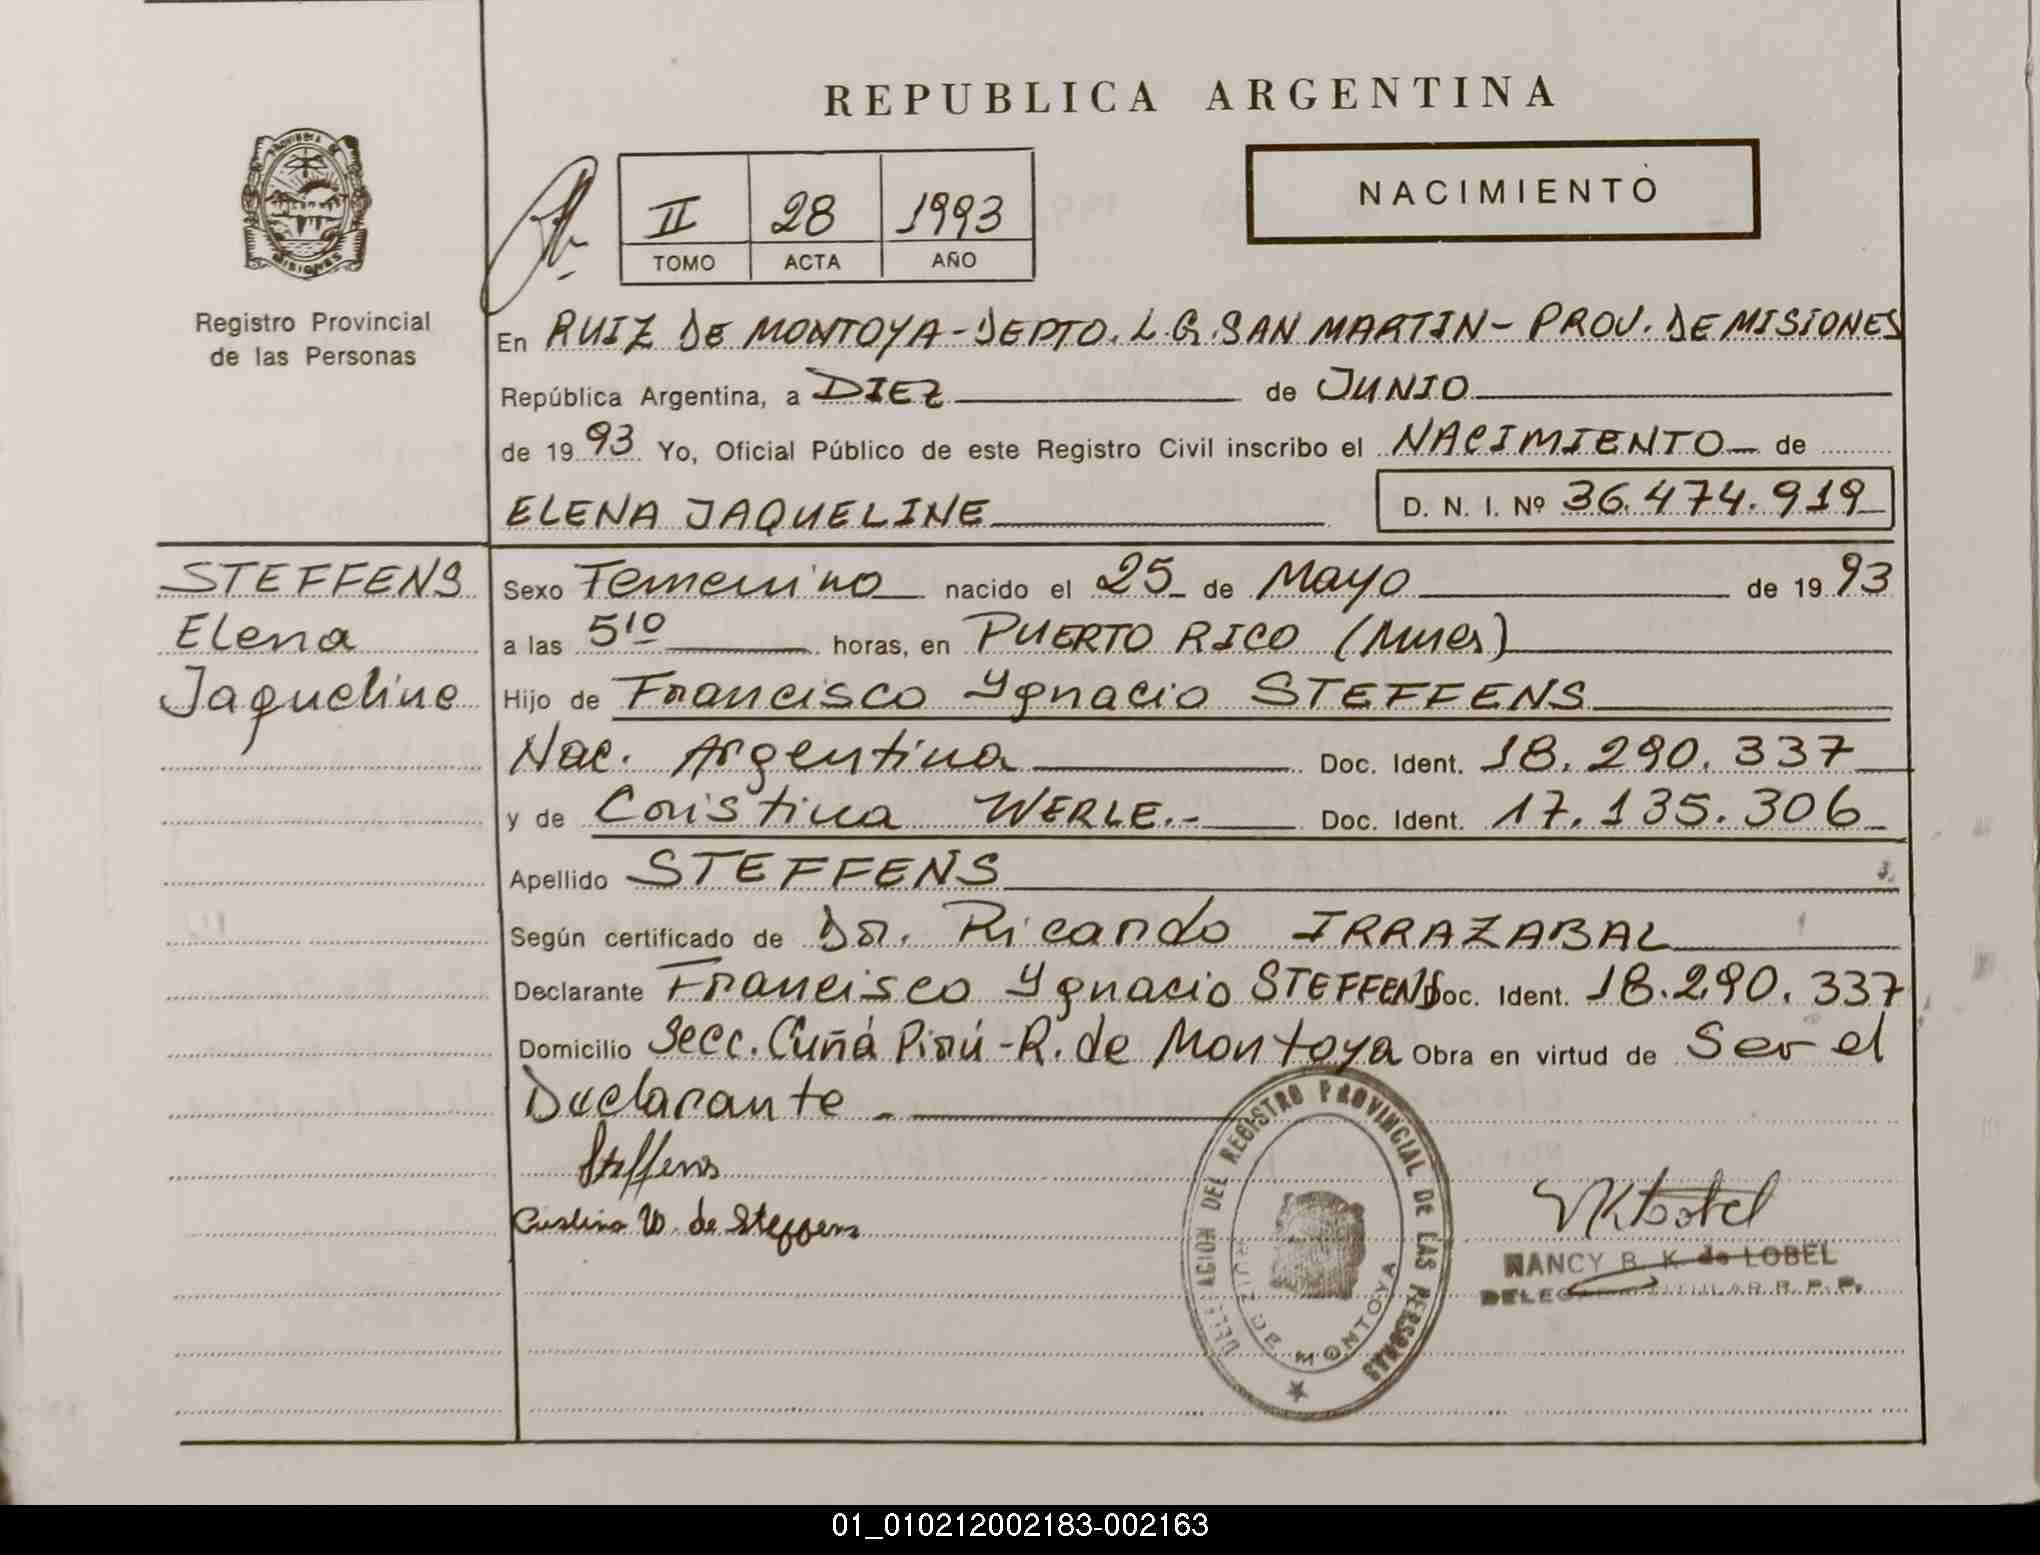 REPUBLICA ARGENTINA
PROVINCIA DE
MISIONES
Registro Provincial
de las Personas
II 28 1993
TOMO ACTA AÑO
NACIMIENTO
En RUIZ DE MONTOYA - DEPTO. L.G. SAN MARTIN - PROV. DE MISIONES
República Argentina, a DIEZ de JUNIO
de 19 93 Yo, Oficial Público de este Registro Civil inscribo el NACIMIENTO de
ELENA JAQUELINE D. N. I. Nº 36.474.919
STEFFENS
Elena
Jaqueline
Sexo Femenino nacido el 25 de Mayo de 19 93
a las 5 10 horas, en PUERTO RICO (Mnes)
Hijo de Francisco Ygnacio STEFFENS
Nac. Argentina Doc. Ident. 18.290.337
y de Cristina WERLE.- Doc. Ident. 17.135.306
Apellido STEFFENS
Según certificado de Dr. Ricardo IRRAZABAL
Declarante Francisco Ygnacio STEFFENS Doc. Ident. 18.290.337
Domicilio Secc. Cuñá Pirú - R. de Montoya Obra en virtud de Ser el
Declarante -
Steffens
Cristina W. de Steffens
DELEGACION DEL REGISTRO PROVINCIAL DE LAS PERSONAS
RUIZ DE MONTOYA
NANCY B. K. de LOBEL
TITULAR R. P. P.
01_010212002183-002163